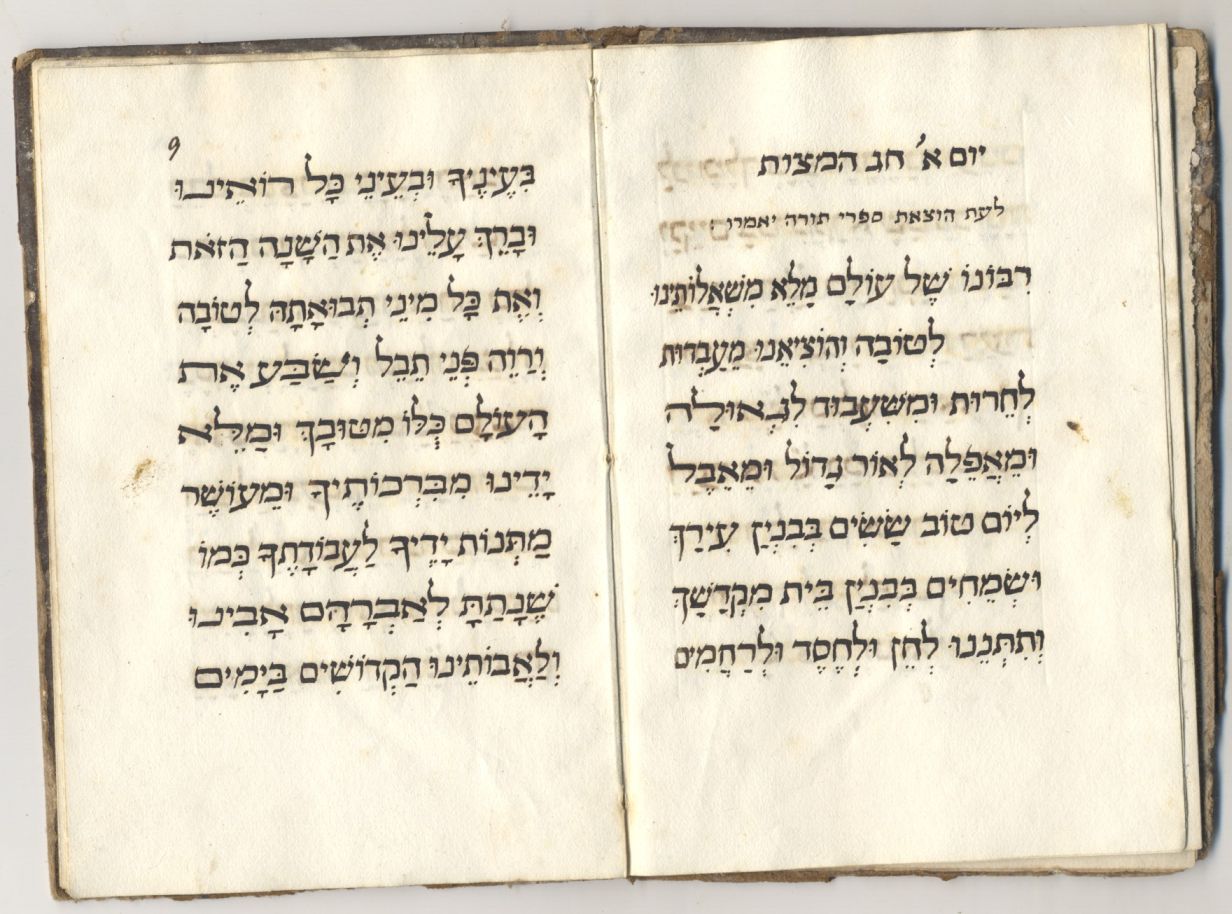 יום א׳ חג המצות
לעת הוצאת ספרי תורה יאמרו
רִבּוֹנוֹ שֶׁל עוֹלָם מָלֵא מִשְׁאֲלוֹתֵינוּ
לְטוֹבָה וְהוֹצִיאֵנוּ מֵעַבְדוּת
לְחֵרוּת וּמִשִּׁעְבּוּד לִגְאוּלָה
וּמֵאֲפֵלָה לְאוֹר גָּדוֹל וּמֵאֵבֶל
לְיוֹם טוֹב שָׂשִׂים בְּבִנְיַן עִירַךְ
וּשְׂמֵחִים בְּבִנְיַן בֵּית מִקְדָּשָׁךְ
וְתִתְּנֵנוּ לְחֵן וּלְחֶסֶד וּלְרַחֲמִים
9
בְּעֵינֶיךָ וּבְעֵינֵי כָּל רוֹאֵינוּ
וּבָרֵךְ עָלֵינוּ אֶת הַשָּׁנָה הַזֹאת
וְאֶת כָּל מִינֵי תְבוּאָתָהּ לְטוֹבָה
וְרַוֵּה פְּנֵי תֵבֵל וְשַׂבַּע אֶת
הָעוֹלָם כֻּלּוֹ מִטוּבָךְ וּמַלֵּא
יָדֵינוּ מִבִּרְכוֹתֶיךָ וּמֵעוֹשֶׁר
מַתְּנוֹת יָדֶיךָ לַעֲבוֹדָתֶךָ כְּמוֹ
שֶׁנָתַתָּ לְאַבְרָהָם אָבִינוּ
וְלַאֲבוֹתֵינוּ הַקְדוֹשִׁים בַּיָמִים